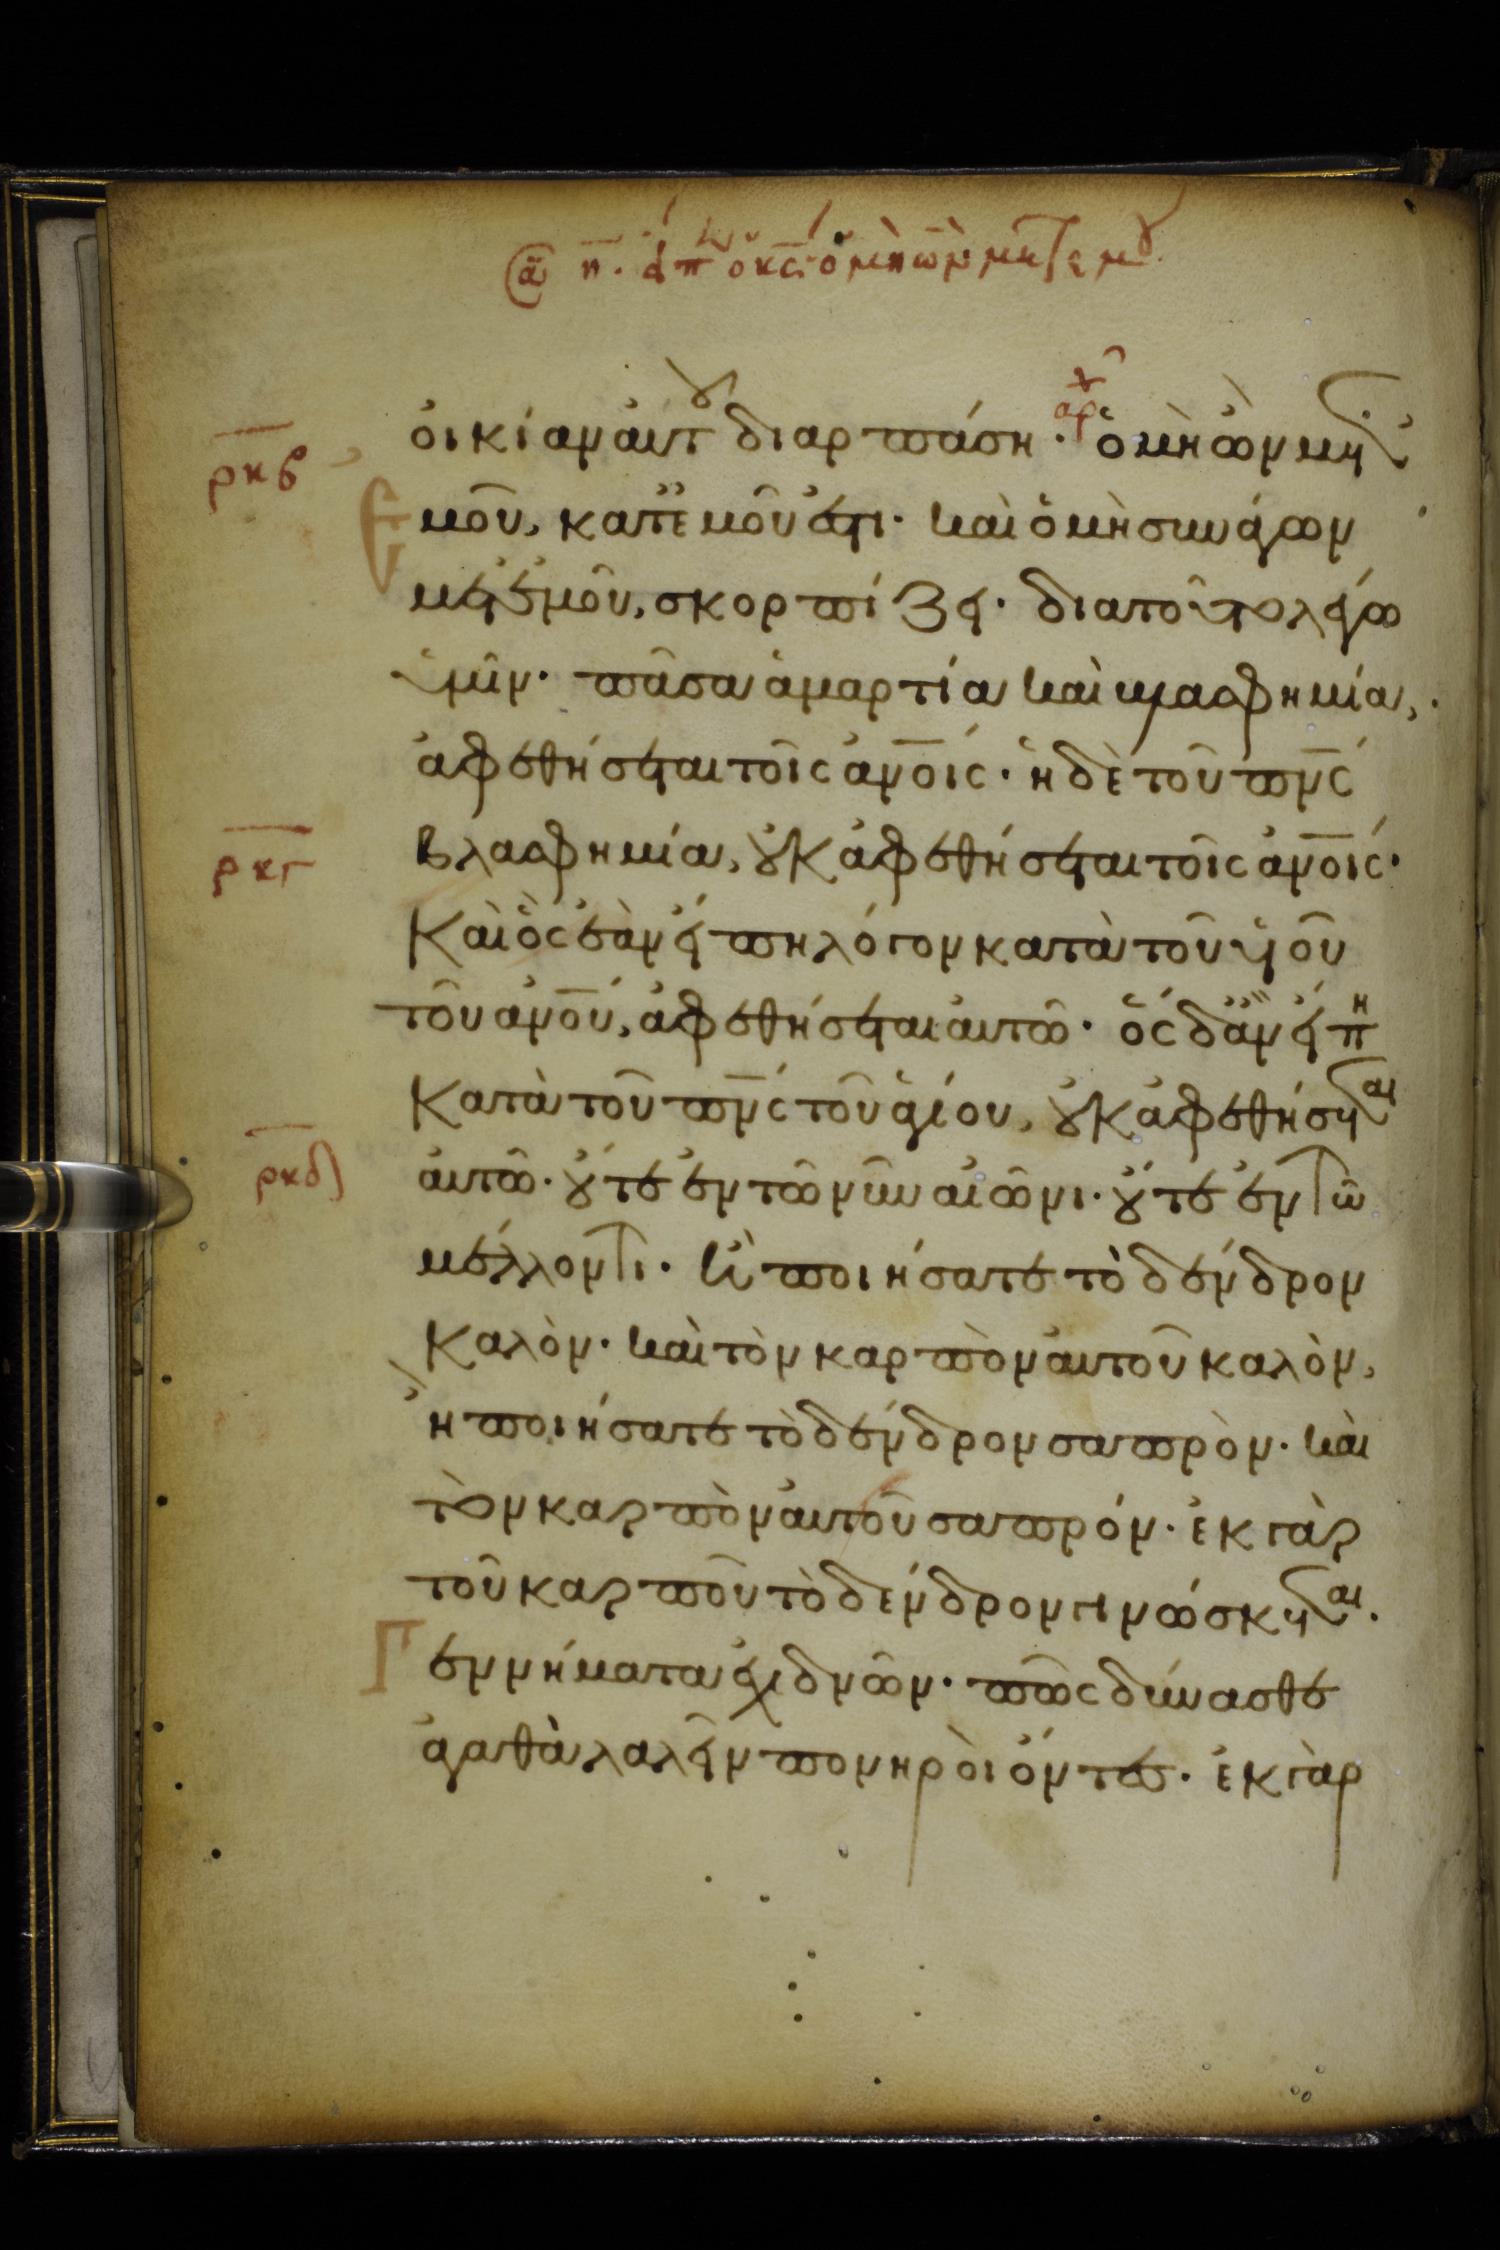 οἰκίαν αὐτου διαρπάση· ὁ μὴ ὢν μετ' ἐ
μοῦ, κατ' ἐμοῦ ἐστι· καὶ ὁ μὴ συνάγων
μετ' ἐμοῦ, σκορπίζει· διατοῦτο λέγω
ὑμῖν· πᾶσα ἁμαρτία καὶ βλασφημία,
ἀφεθήσεται τοῖς ἀν̅ο̅ι̅ς· ἡ δὲ τοῦ π̅ν̅ς
βλασφημία, οὐκ ἀφεθήσεται τοῖς ἀν̅ο̅ι̅ς·
Καὶ ὃς ἐὰν εἴπη λόγον κατὰ τοῦ υἱοῦ
τοῦ ἀν̅ο̅υ̅, ἀφεθήσεται αὐτῶ· ὃς δ' ἂν εἴπη
κατὰ τοῦ π̅ν̅ς τοῦ ἁγίου, οὐκ ἀφεθήσεται
αὐτῶ· οὔτε ἐν τῶ νῦν αἰῶνι· οὔτε ἐν τῶ
μέλλοντι· ἢ ποιήσατε τὸ δένδρον
καλὸν· καὶ τὸν καρπὸν αὐτοῦ καλὸν,
ἢ ποιήσατε τὸ δένδρον σαπρὸν· καὶ
τὸν καρπὸν αὐτοῦ σαπρόν· ἐκ γὰρ
τοῦ καρποῦ τὸ δένδρον γινώσκεται·
Γεννήματα ἐχιδνῶν· πῶς δύνασθε
ἀγαθὰ λαλεῖν πονηροὶ ὄντες· ἐκ γὰρ
ρκβ
ρκγ
ρκδ